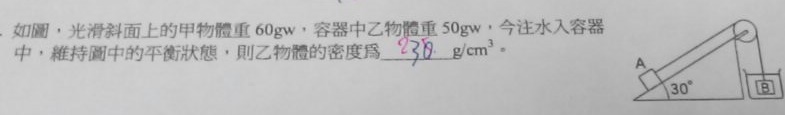 如圖，光滑斜面上的甲物體重 60gw，容器中乙物體重 50gw，今注水入容器
中，維持圖中的平衡狀態，則乙物體的密度為 g/cm³。
A
30°
B